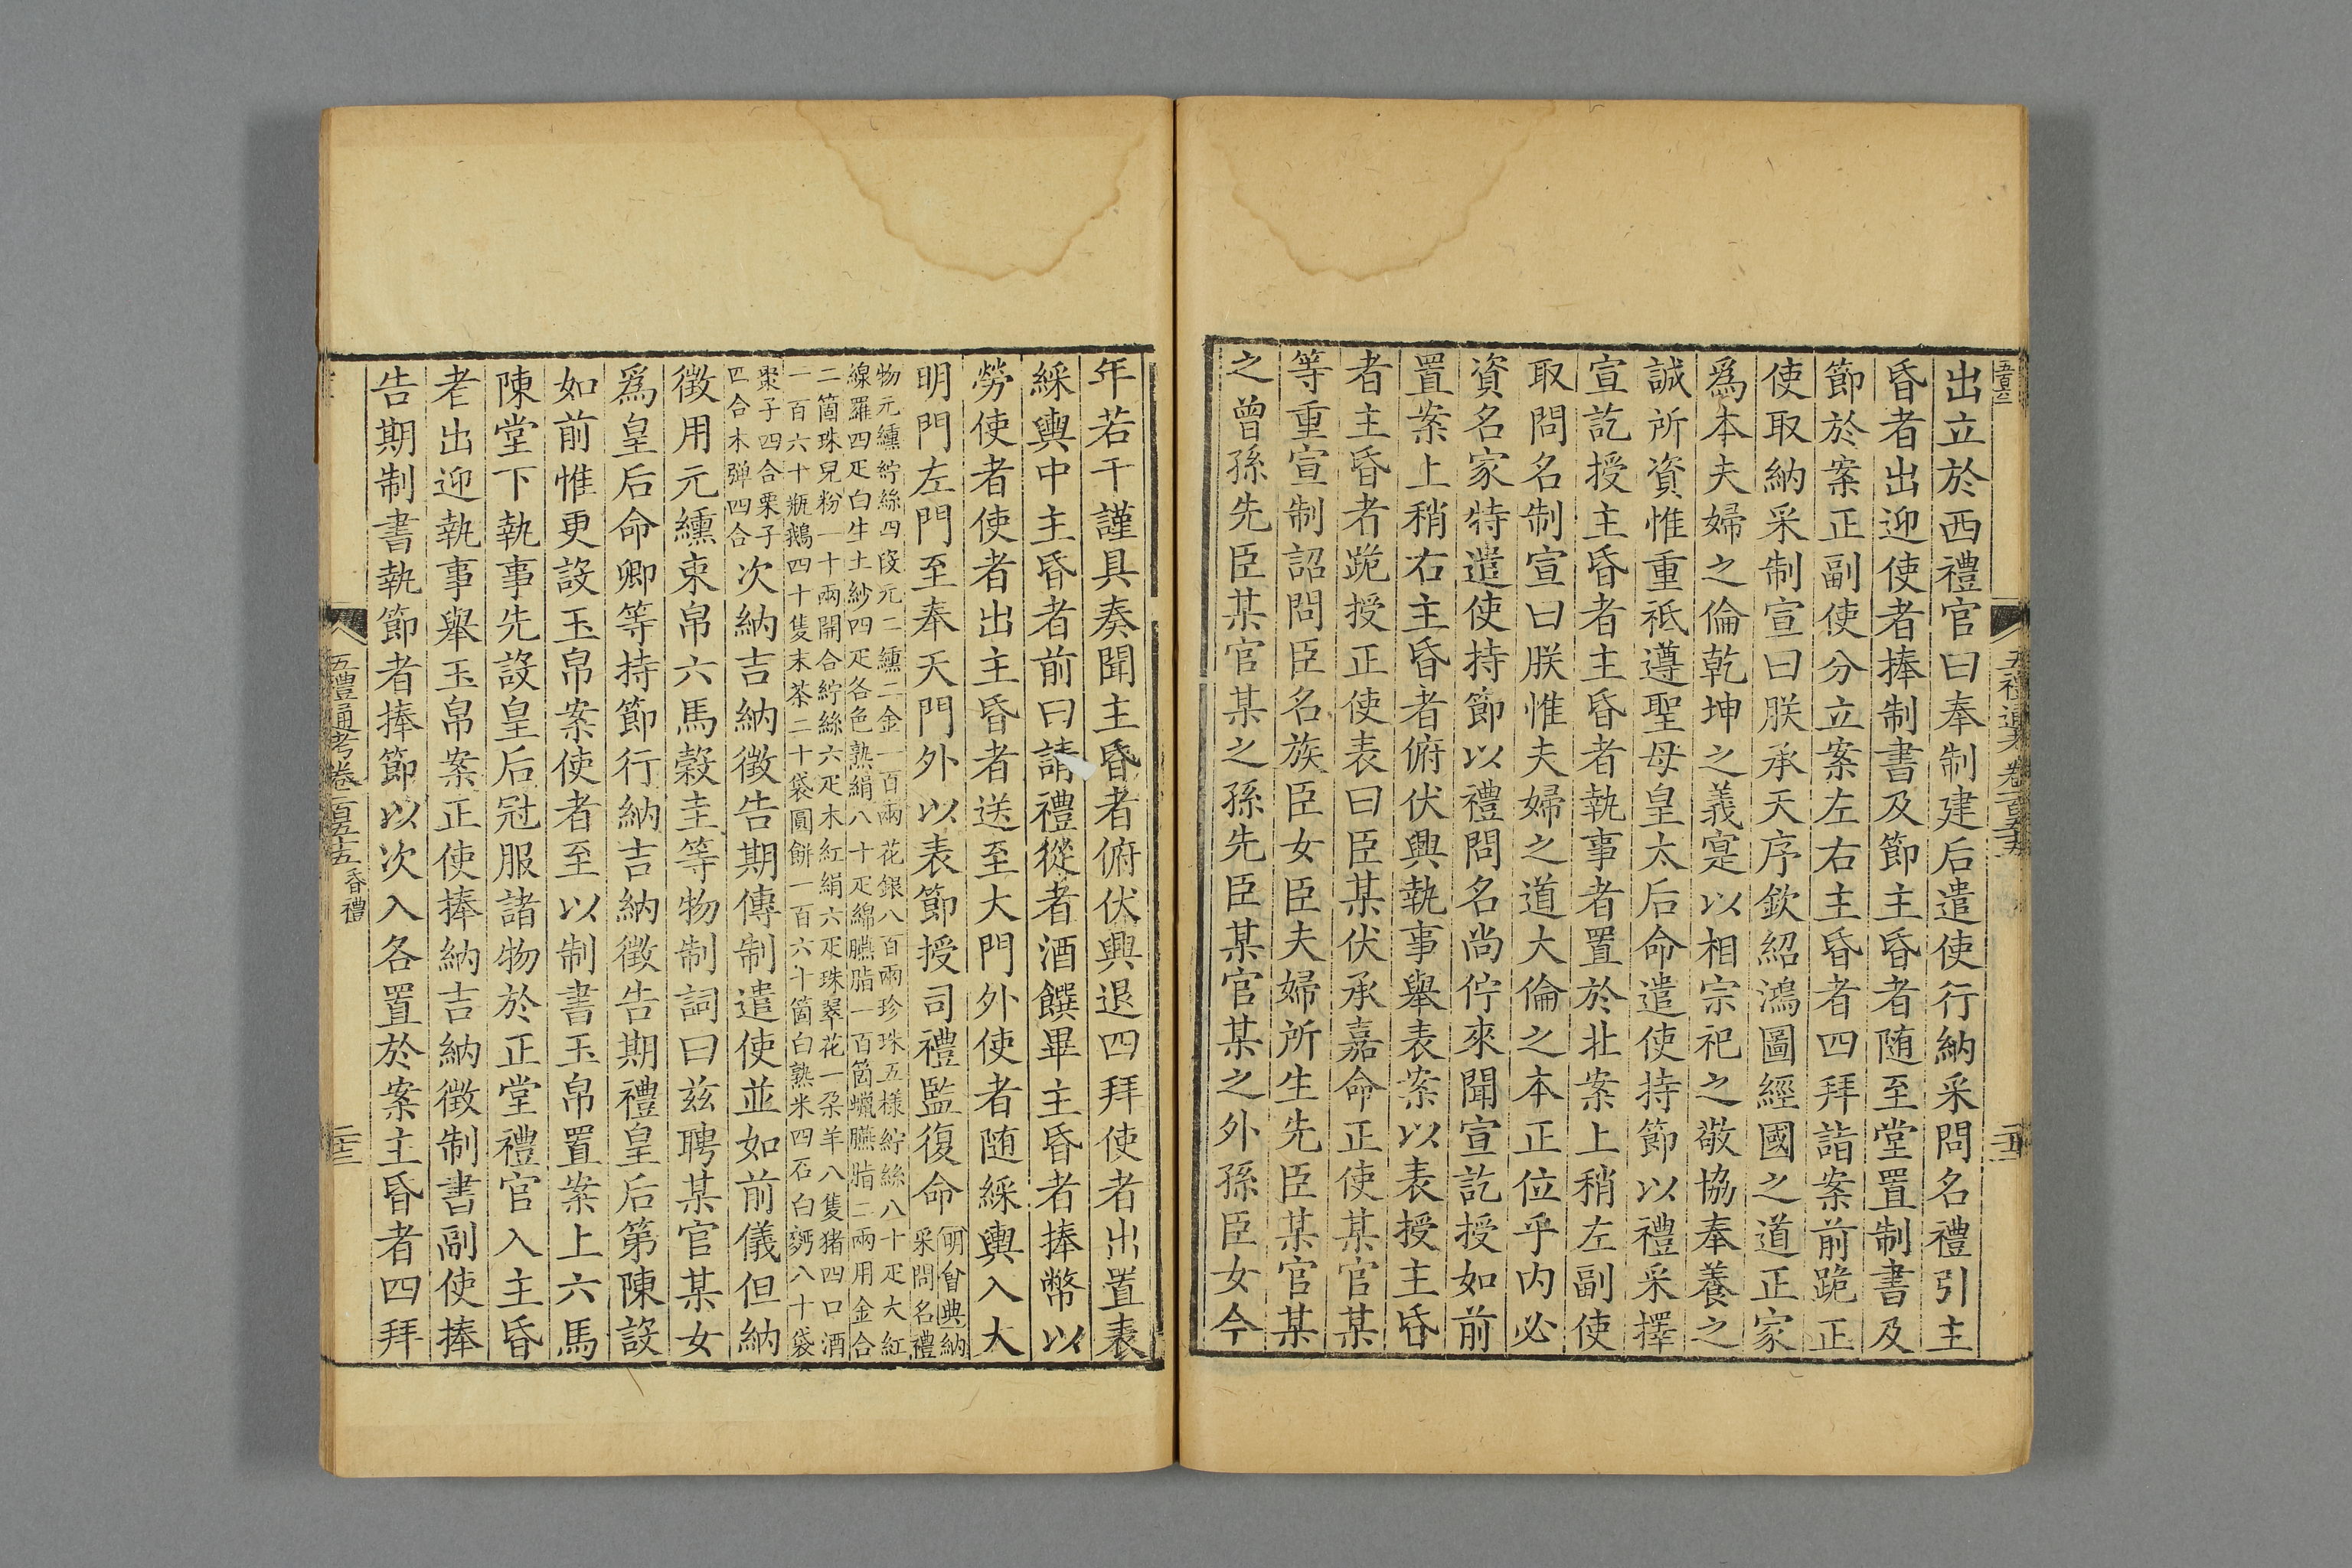 出立於西禮官曰奉制建后遣使行納采問名禮引主
昏者出迎使者捧制書及節主昏者随至堂置制書及
節於案正副使分立案左右主昏者四拜詣案前跪正
使取納采制宣曰朕承天序欽紹鴻圖經國之道正家
爲本夫婦之倫乾坤之義寔以相宗祀之敬協奉養之
誠所資惟重祗遵聖母皇太后命遣使持節以禮采擇
宣訖授主昏者主昏者執事者置於北案上稍左副使
取問名制宣曰朕惟夫婦之道大倫之本正位乎内必
資名家特遣使持節以禮問名尚佇來聞宣訖授如前
置案上稍右主昏者俯伏興執事舉表案以表授主昏
者主昏者跪授正使表曰臣某伏承嘉命正使某官某
等重宣制詔問臣名族臣女臣夫婦所生先臣某官某
之曾孫先臣某官某之孫先臣某官某之外孫臣女今
年若干謹具奏聞主昏者俯伏興退四拜使者出置表
綵輿中主昏者前曰請禮從者酒饌畢主昏者捧幣以
勞使者使者出主昏者送至大門外使者随綵輿入大
明門左門至奉天門外以表節授司禮監復命
明會典納
采問名禮
物元纁紵絲四段元二纁二金一百兩花銀八百兩珍珠五様紵絲八十疋大紅
線羅四疋白生土紗四疋各色熟絹八十疋綿臙脂一百箇蠟臙脂二兩用金合
二箇珠皃粉一十兩開合紵絲六疋木紅絹六疋珠翠花一朶羊八隻猪四口酒
一百六十瓶鵝四十隻末茶二十袋圓餅一百六十箇白熟米四石白麪八十袋
棗子四合栗子
四合木彈四合
次納吉納徵告期傳制遣使並如前儀但納
徵用元纁束帛六馬穀圭等物制詞曰兹聘某官某女
爲皇后命卿等持節行納吉納徵告期禮皇后第陳設
如前惟更設玉帛案使者至以制書玉帛置案上六馬
陳堂下執事先設皇后冠服諸物於正堂禮官入主昏
者出迎執事舉玉帛案正使捧納吉納徵制書副使捧
告期制書執節者捧節以次入各置於案主昏者四拜
五禮通考卷一百五十五 昏禮
二十三